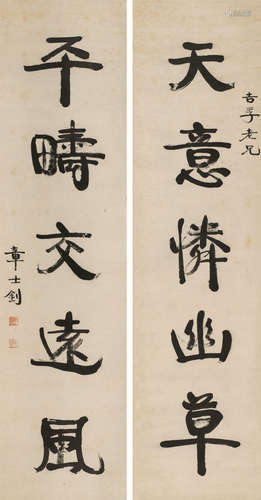 吉孚老兄
天意憐幽草
平疇交遠風
章士釗